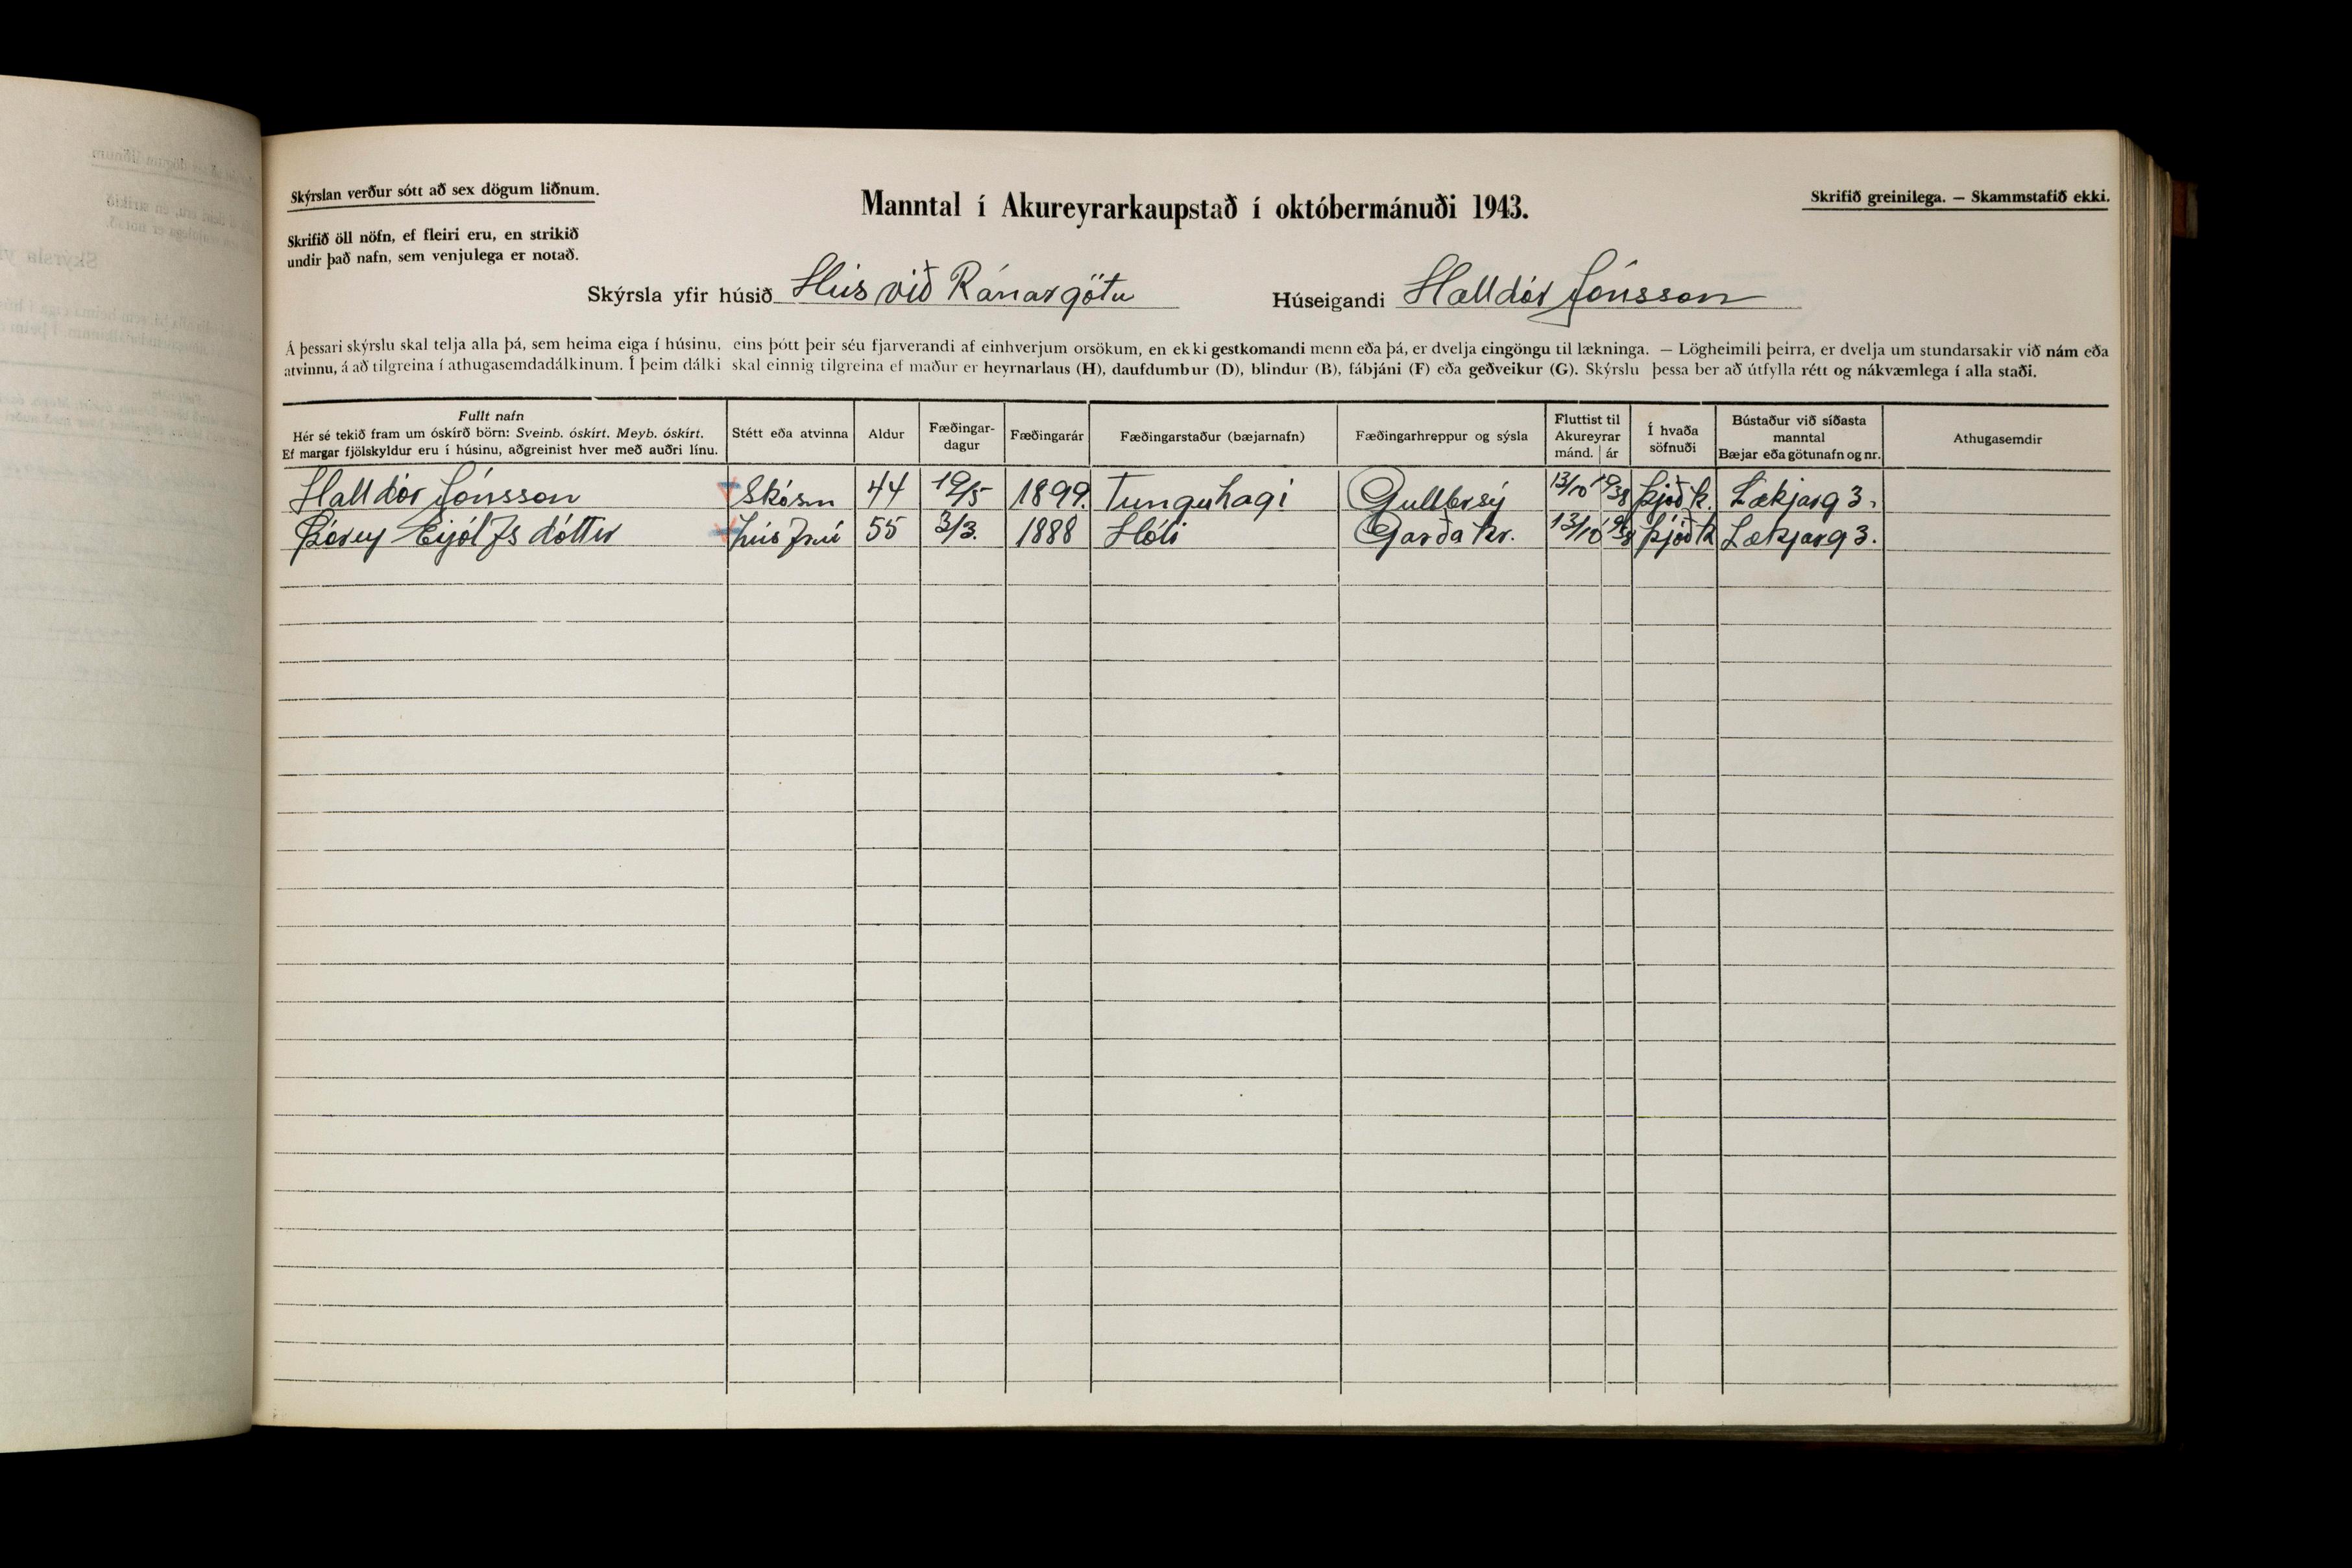 Skýrslan verður sótt að sex dögum liðnum.
Skrifið öll nöfn, ef fleiri eru, en strikið
undir það nafn, sem venjulega er notað.
Manntal í Akureyrarkaupstað í októbermánuði 1943.
Skrifið greinilega. — Skammstafið ekki.
Skýrsla yfir húsið Hús við Ránargötu Húseigandi Halldór Jónsson
Á þessari skýrslu skal telja alla þá, sem heima eiga í húsinu, eins þótt þeir séu fjarverandi af einhverjum orsökum, en ekki gestkomandi menn eða þá, er dvelja eingöngu til lækninga. — Lögheimili þeirra, er dvelja um stundarsakir við nám eða
atvinnu, á að tilgreina í athugasemdadálkinum. Í þeim dálki skal einnig tilgreina ef maður er heyrnarlaus (H), daufdumbur (D), blindur (B), fábjáni (F) eða geðveikur (G). Skýrslu þessa ber að útfylla rétt og nákvæmlega í alla staði.
Fullt nafn
Hér sé tekið fram um óskírð börn: Sveinb. óskírt. Meyb. óskírt.
Ef margar fjölskyldur eru í húsinu, aðgreinist hver með auðri línu.
Stétt eða atvinna
Aldur
Fæðingar-
dagur
Fæðingarár
Fæðingarstaður (bæjarnafn)
Fæðingarhreppur og sýsla
Fluttist til
Akureyrar
mánd. ár
Í hvaða
söfnuði
Bústaður við síðasta
manntal
Bæjar eða götunafn og nr.
Athugasemdir
Halldór Jónsson Skósm 44 19/5 1899. Tunguhagi Gullbrsý 13/10 1938 Þjóðk. Lækjarg 3.
Þórey Eijólfsdóttir húsfrú 55 3/3. 1888 Hóli Garðahr. 13/10 1938 Þjóðk Lækjarg 3.